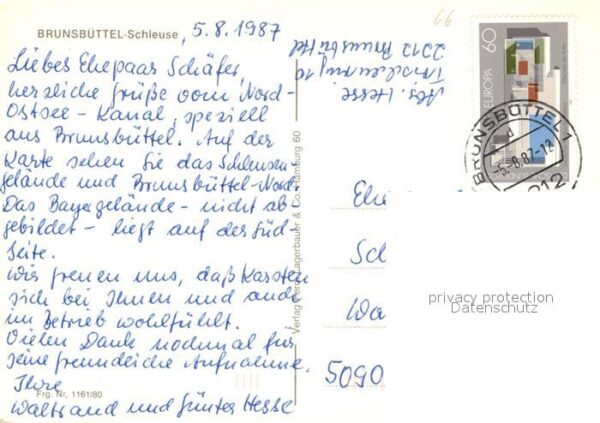 BRUNSBÜTTEL-Schleuse, 5.8.1987
Liebes Ehepaar Schäfer,
herzliche Grüße vom Nord-
Ostsee-Kanal, speziell
aus Brunsbüttel. Auf der
Karte sehen Sie das Schleusen-
gelände und Brunsbüttel-Nord.
Das Bayergelände - nicht ab-
gebildet - liegt auf der Süd-
seite.
Wir freuen uns, daß Karsten
sich bei Ihnen und auch
im Betrieb wohlfühlt.
Vielen Dank nochmal für
seine freundliche Aufnahme.
Ihre
Waltraud und Günter Hesse
Frg. Nr. 1161/80
Verlag Lagerbauer & Co. Hamburg 60
Abs. Hesse
2212 Brunsbüttel
66
60
EUROPA
BRUNSBÜTTEL 1
-5.-8.87-12
Ehe
Sch
Wa
5090
privacy protection
Datenschutz